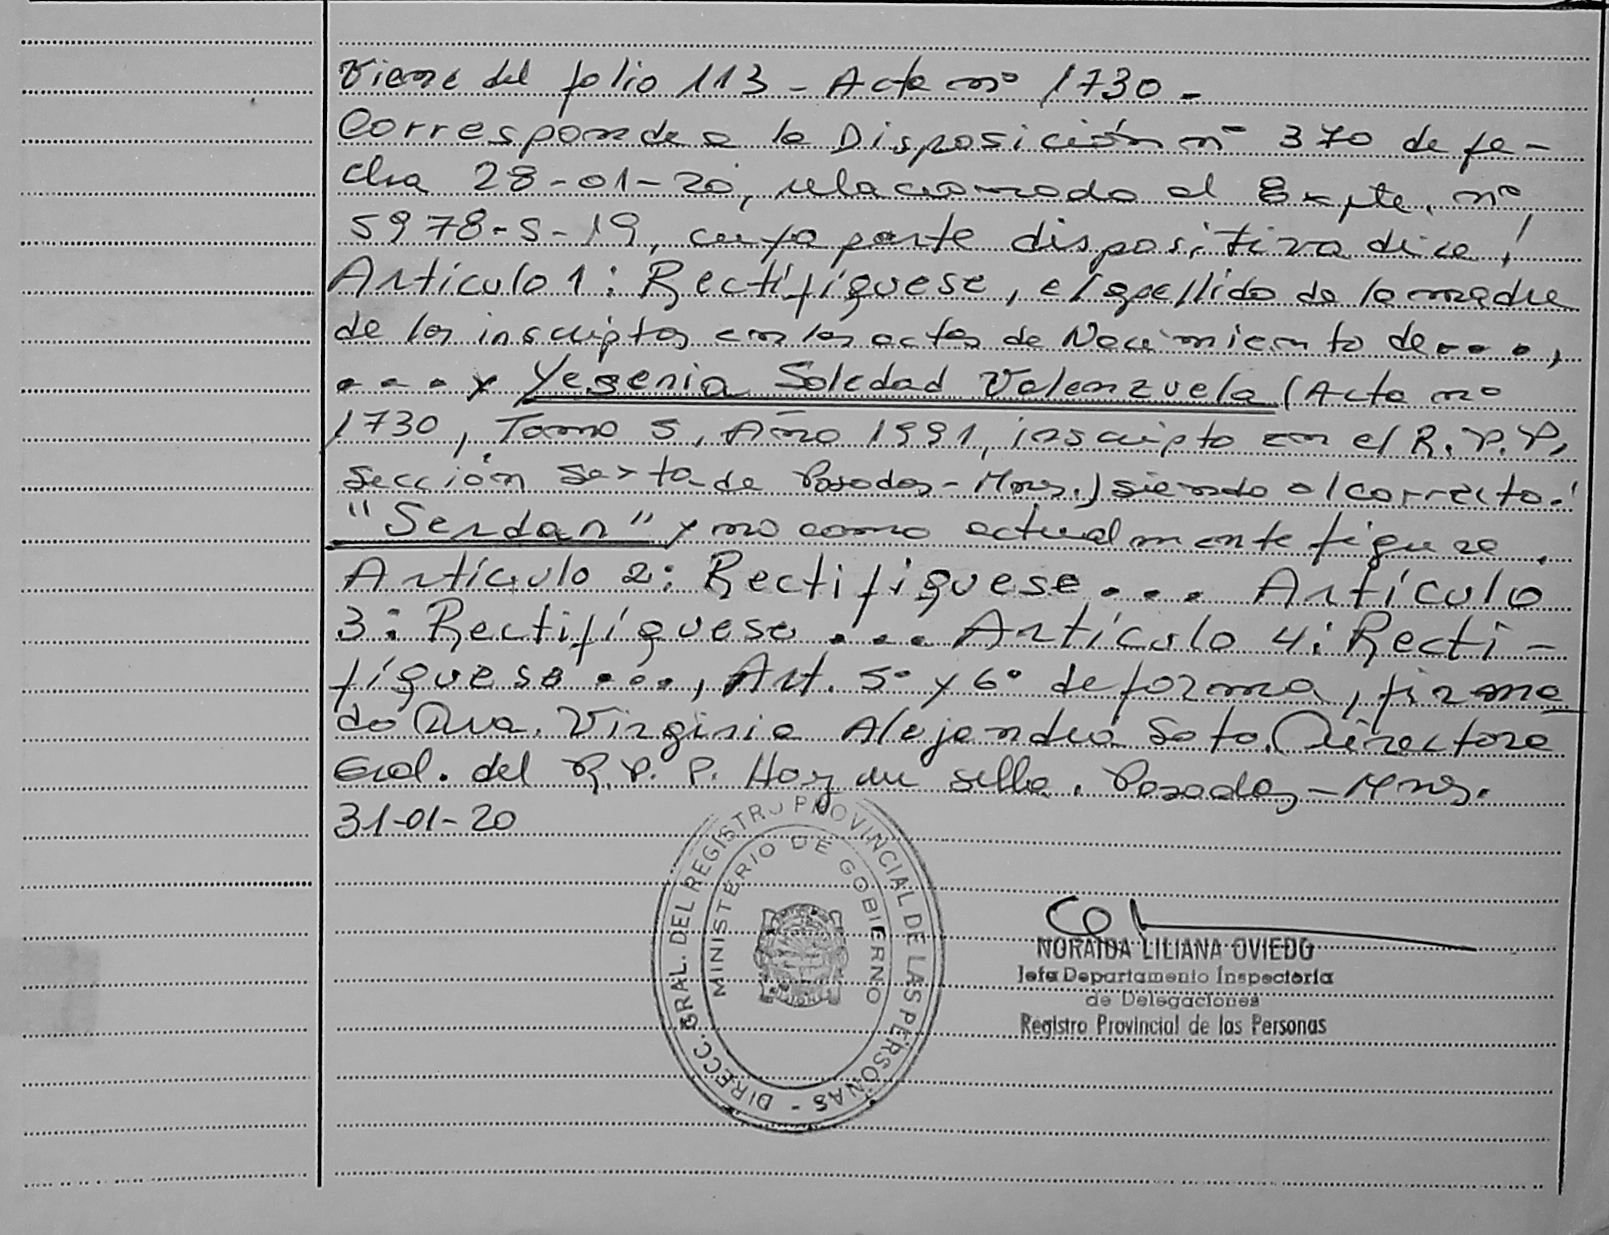 Viene del folio 113 - Acta nº 1730 -
Corresponde a la Disposición nº 370 de fe-
cha 28-01-20, relacionado al Expte. nº
5978-S-19, cuya parte dispositiva dice:
Artículo 1: Rectifíquese, el apellido de la madre
de los inscriptos en las actas de Nacimiento de...,
... y Yesenia Soledad Valenzuela (Acta nº
1730, Tomo 5, Año 1991, inscripto en el R.P.P,
Sección Sexta de Posadas - Mnes.) siendo el correcto:
"Serdan" y no como actualmente figura.
Artículo 2: Rectifíquese... Artículo
3: Rectifíquese... Artículo 4: Recti-
fíquese..., Art. 5º y 6º de forma, firma
do Dra. Virginia Alejandra Soto. Directora
Gral. del R.P.P. Hay un sello. Posadas - Mnes.
31-01-20
DIRECC. GRAL. DEL REGISTRO PROVINCIAL DE LAS PERSONAS -
MINISTERIO DE GOBIERNO
NORAIDA LILIANA OVIEDO
Jefa Departamento Inspectoría
de Delegaciones
Registro Provincial de las Personas